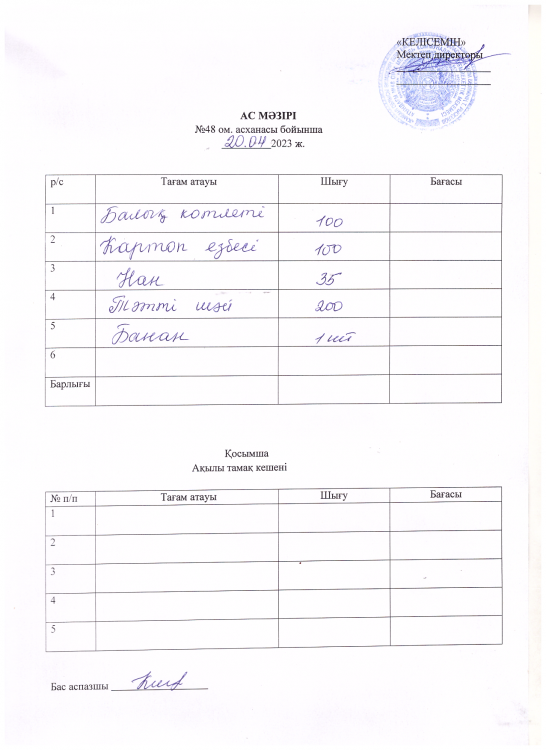 «КЕЛІСЕМІН»
Мектеп директоры
АС МӘЗІРІ
№48 ом. асханасы бойынша
20.04 2023 ж.
р/с Тағам атауы Шығу Бағасы
1 Балық котлеті 100
2 Картоп езбесі 100
3 Нан 35
4 Тәтті шәй 200
5 Банан 1 шт
6
Барлығы
Қосымша
Ақылы тамақ кешені
№ п/п Тағам атауы Шығу Бағасы
1
2
3
4
5
Бас аспазшы